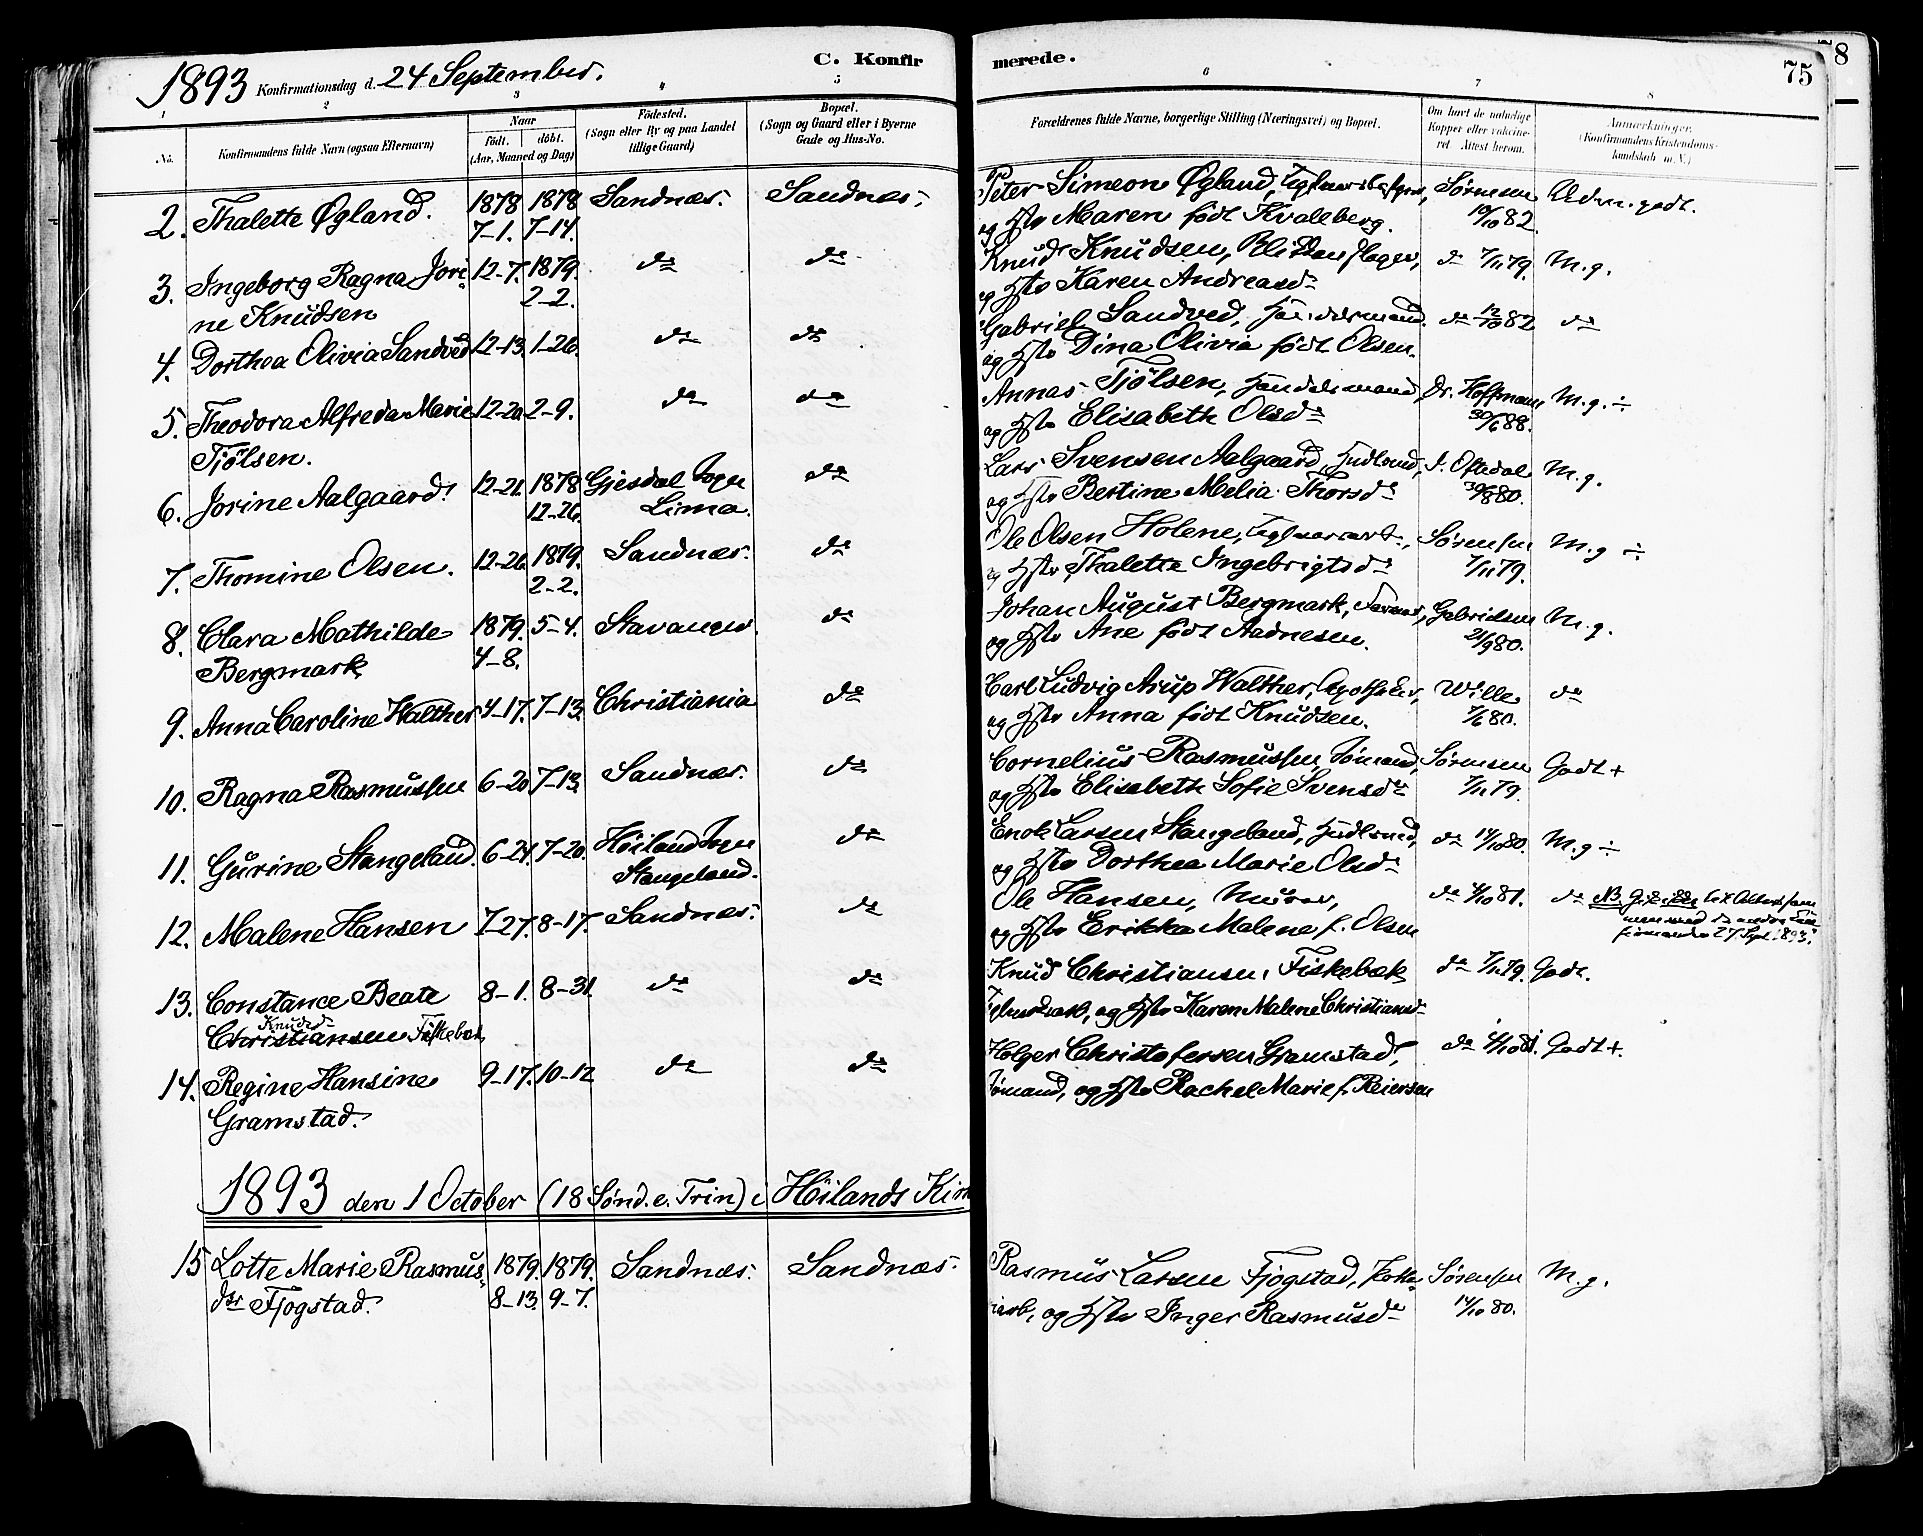 1893 Konfirmationsdag d. 24 September.
C. Konfirmerede.
75
78
1 2 3 4 5 6 7 8
No.
Konfirmandens fulde Navn (ogsaa Efternavn)
Naar
født. døbt.
(Aar, Maaned og Dag)
Fødested.
(Sogn eller By og paa Landet
tillige Gaard)
Bopæl.
(Sogn og Gaard eller i Byerne
Gade og Hus-No.
Forældrenes fulde Navne, borgerlige Stilling (Næringsvei) og Bopæl.
Om havt de naturlige
Kopper eller vaccine-
ret. Attest herom.
Anmærkninger.
(Konfirmandens Kristendoms-
kundskab m. V.)
2. Thalette Øgland. 1878 1878 Sandnæs. Sandnæs. Peter Simeon Øgland, Sørensen Udm. godt.
7-1. 7-14. og Hstr Maren født Kvaleberg. 10/10 82.
3. Ingeborg Ragna Jori- 12-7. 1879. do do Knud Knudsen, Blikkenslager, do 7/11 79. M.g.
ne Knudsen 2-2. og Hstr Karen Andreasdr
4. Dorthea Olivia Sandved 12-13. 1-26. do do Gabriel Sandved, Handelsmand. do 12/10 82 do
og Hstr Dina Olivia født Olsen.
5. Theodora Alfreda Marie 12-20. 2-9. do do Annas Tjölsen, Handelsmand, Dr. Hoffmann M.g. ÷
Tjölsen. og Hstr Elisabeth Olsdr 30/6 88.
6. Jorine Aalgaard. 12-21. 1878 Gjesdal Sogn do Lars Svensen Aalgaard, Husmd, J. Oftedal M.g.
12-26. Lima. og Hstr Bertine Melia Thorsdr 30/8 80.
7. Thomine Olsen. 12-26. 1879. Sandnæs. do Ole Olsen Holene, Teglværksarb., Sørensen M.g ÷
2-2. og Hstr Thalette Ingebrigtsdr 7/11 79.
8. Clara Mathilde 1879. 5-4. Stavanger. do Johan August Bergmark, Farver, Gabrielsen M.g.
Bergmark 4-8. og Hstr Ane født Aadnesen. 21/9 80.
9. Anna Caroline Walther 4-17. 7-13. Christiania do Carl Ludvig Arup Walther, Apotheker, Wille do
og Hstr Anna født Knudsen. 7/6 80.
10. Ragna Rasmussen 6-20 7-13. Sandnæs. do Cornelius Rasmussen, Sømand, Sørensen Godt +
og Hstr Elisabeth Sofie Svensdr 7/11 79.
11. Gurine Stangeland. 6-24. 7-20. Höiland Sogn do Enok Larsen Stangeland, do 14/10 80. M.g ÷
Stangeland. og Hstr Dorthea Marie Olsdr
12. Malene Hansen 7-27. 8-17. Sandnæs. do Ole Hansen, Murer, do 4/10 81. do NB. til Alters sam-
og Hstr Erikka Malene f. Olsen men med de andre
27 Sept. 1893.
13. Constance Beate 8-1. 8-31. do do Knud Christiansen Fiskebæk do 7/11 79. Godt.
Knudsdr
Christiansen Fiskebæk og Hstr Karen Malene Christiansdr
14. Regine Hansine 9-17. 10-12 do do Holger Christofersen Gramstad, do 4/10 81. Godt +.
Gramstad. Sømand, og Hstr Rachel Marie f. Reiersen
1893 den 1 October (18 Sønd. e. Trin) i Höilands Kirk
15 Lotte Marie Rasmus- 1879. 1879. Sandnæs. Sandnæs. Rasmus Larsen Fjogstad, Sørensen M.g.
dtr Fjogstad. 8-13. 9-7. og Hstr Inger Rasmusdr 14/10 80.